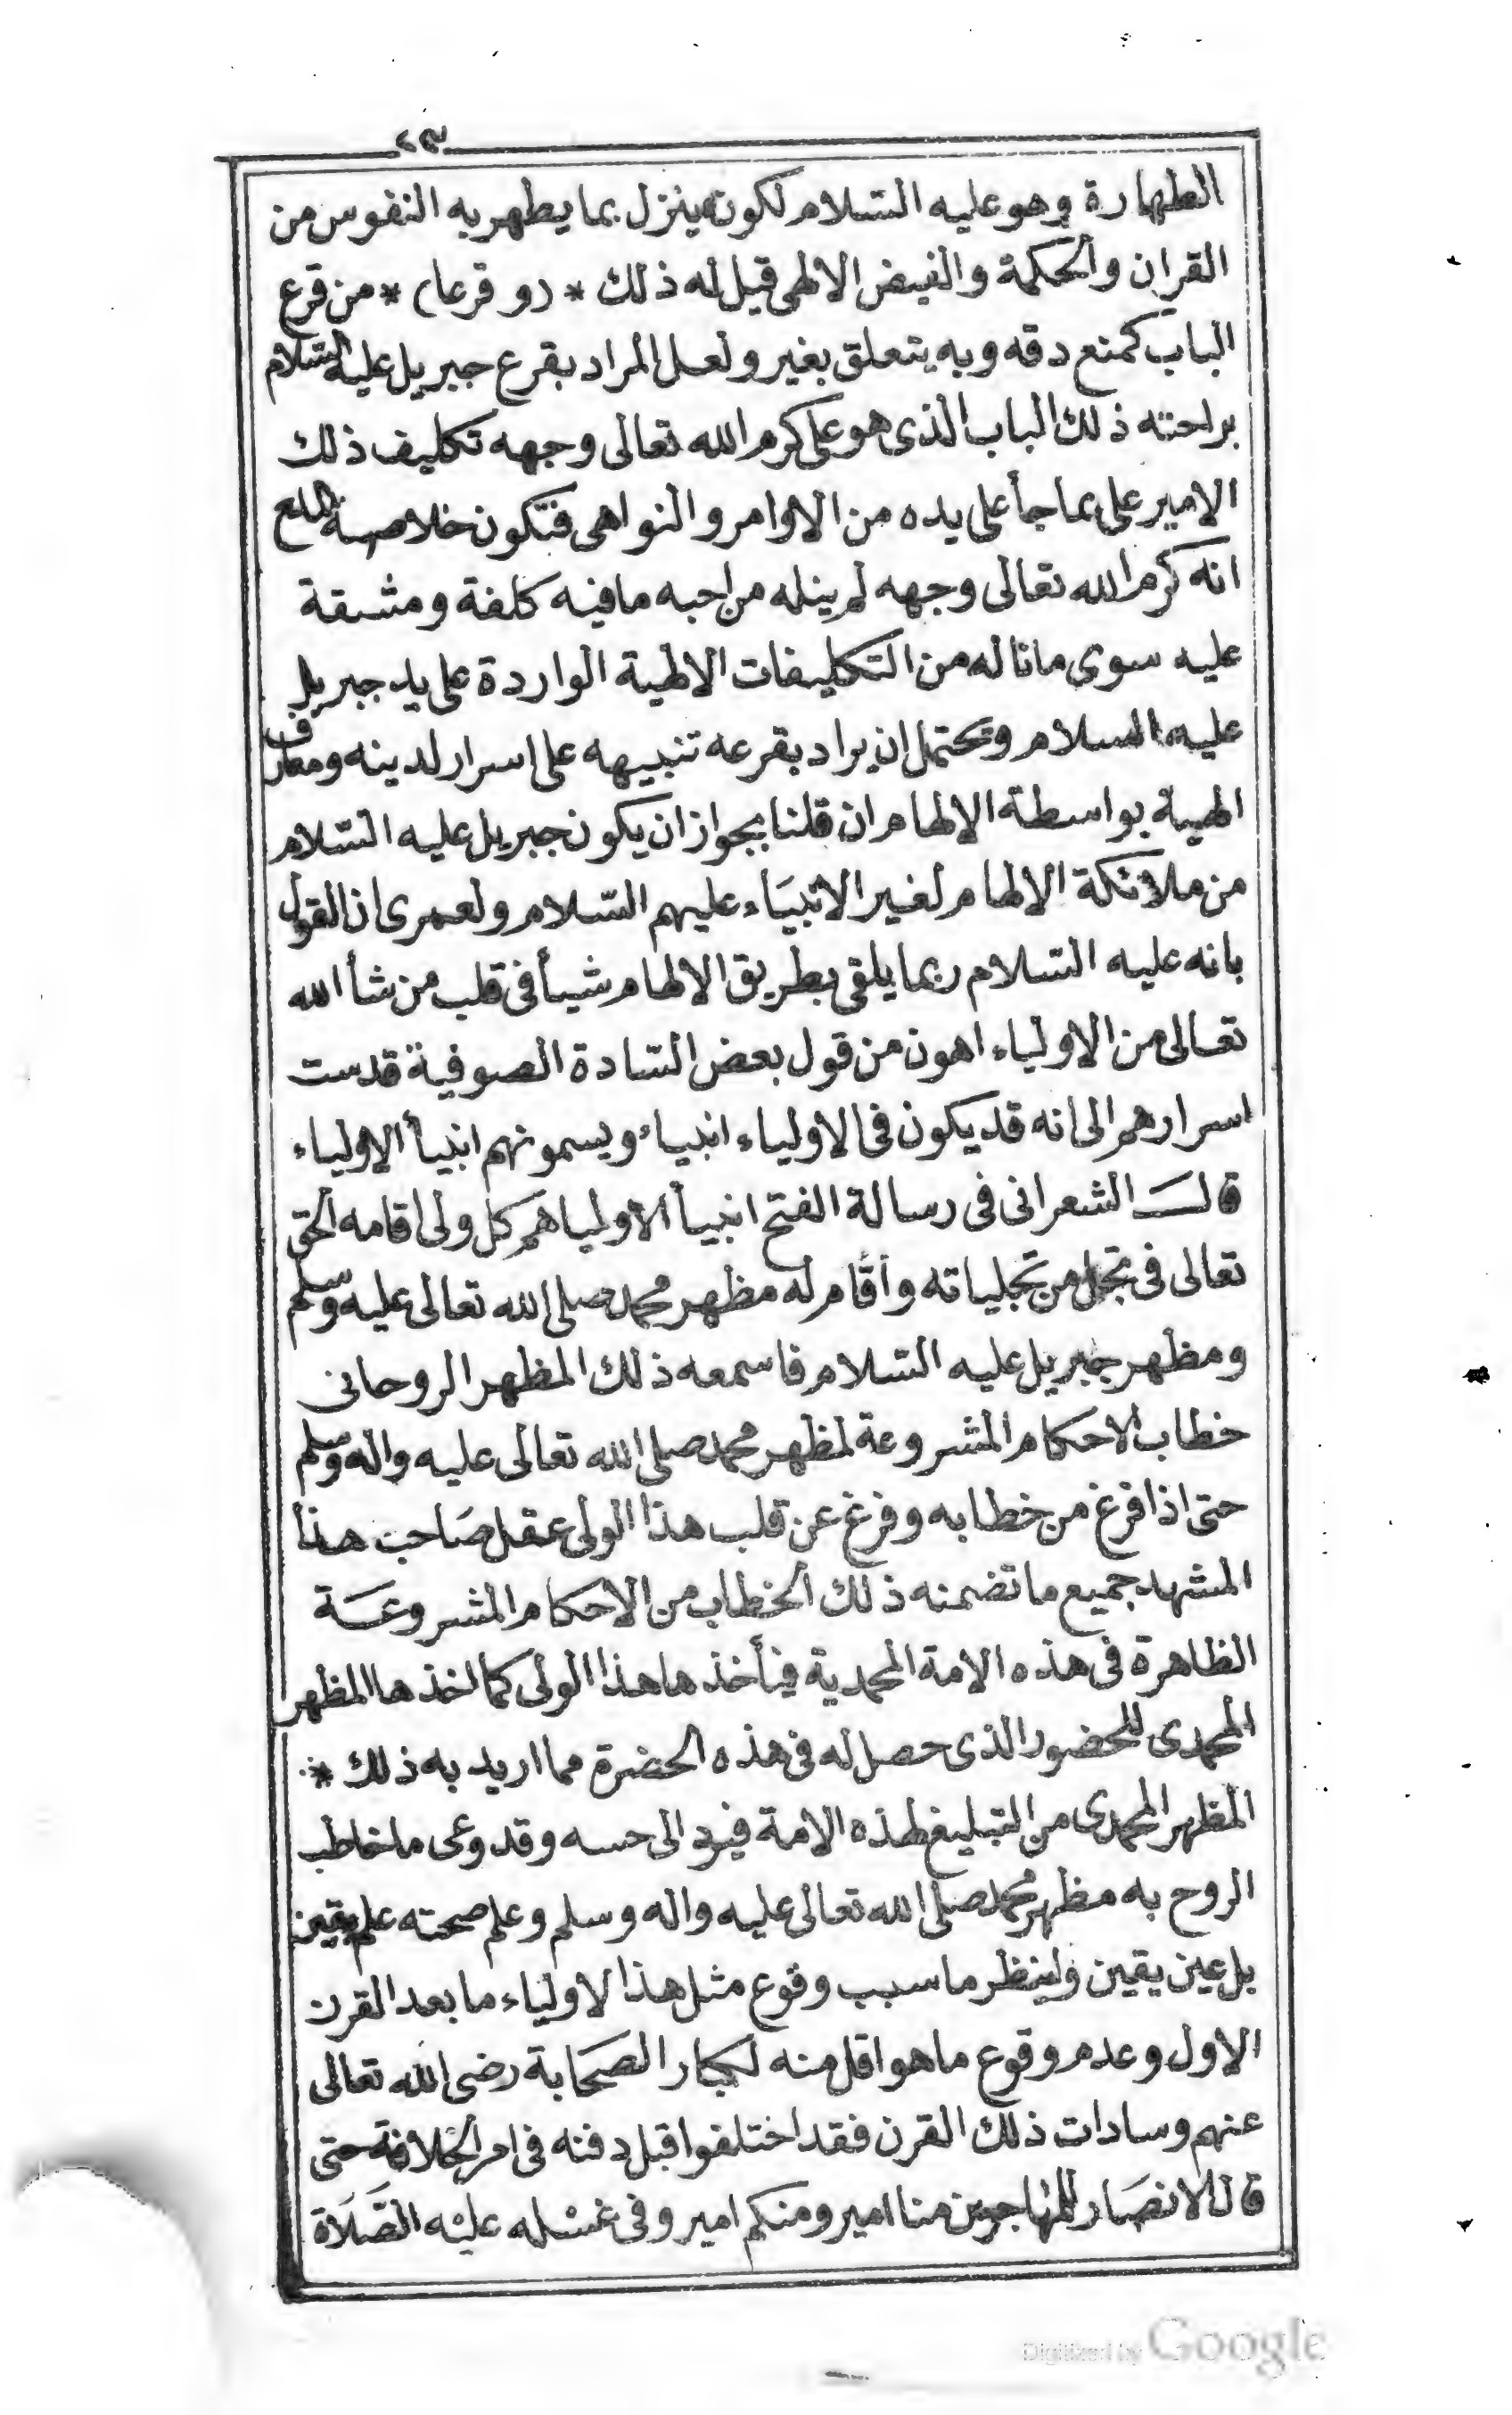 ٢٣
الطهارة وهو عليه السّلام لكونه ينزل بما يطهر به النفوس من
القران والحكمة والفيض الالهى قيل له ذلك * (وقرعا) * من قرع
الباب كمنع دقه وبه يتعلق بغير ولعل المراد بقرع جبريل عليه السّلام
براحته ذلك الباب الذى هو على كرم الله تعالى وجهه تكليف ذلك
الامير على بما جأ على يده من الاوامر والنواهى فتكون خلاصة المدح
انه كرم الله تعالى وجهه لم ينله من احبه مافيه كلفة ومشقة
عليه سوى ماناله من التكليفات الالهية الواردة على يد جبريل
عليه السلام ويحتمل ان يراد بقرعه تنبيهه على اسرار لدينه ومعارف
الهية بواسطة الالهام ان قلنا بجواز ان يكون جبريل عليه السّلام
من ملائكة الالهام لغير الانبيَاء عليهم السّلام ولعمرى ان القول
بانه عليه السّلام ربما يلقى بطريق الالهام شيأ فى قلب من شأ الله
تعالى من الاولياء اهون من قول بعض السّادة الصوفية قدست
اسرارهم الى انه قد يكون فى الاولياء انبياء ويسمونهم انبيأ الاولياء
قالـَـ الشعرانى فى رسالة الفتح انبيأ الاولياهم كل ولى اقامه الحق
تعالى فى تجل من تجلياته وأقام له مظهر محمد صلى الله تعالى عليه وسلم
ومظهر جبريل عليه السّلام فاسمعه ذلك المظهر الروحانى
خطاب الاحكام المشروعة لمظهر محمد صلى الله تعالى عليه واله وسلم
حتى اذا فرغ من خطابه وفزع عن قلب هذا الولى عقل صَاحب هذا
المشهد جميع ما تضمنه ذلك الخطاب من الاحكام المشروعَـة
الظاهرة فى هذه الامة المحمدية فيأخذها هذا الولى كما اخذها المظهر
المحمدى للحضور الذى حصل له فى هذه الحضرة مما اريد به ذلك *
المظهر المحمدى من التبليغ لهذه الامة فيرد الى حسه وقد وعى ما خاطب
الروح به مظهر محمد صلى الله تعالى عليه واله وسلم وعلم صحته علم يقين
بل عين يقين ولينظر ما سبب وقوع مثل هذا لاولياء ما بعد القرن
الاول وعدم وقوع ما هو اقل منه لكبار الصحَابة رضى الله تعالى
عنهم وسادات ذلك القرن فقد اختلفوا قبل دفنه فى امر الخلافة حتى
قال الانصَار للمهاجرين منا امير ومنكم امير وفى غسله عليه الصَّلَاة
Digitized by Google